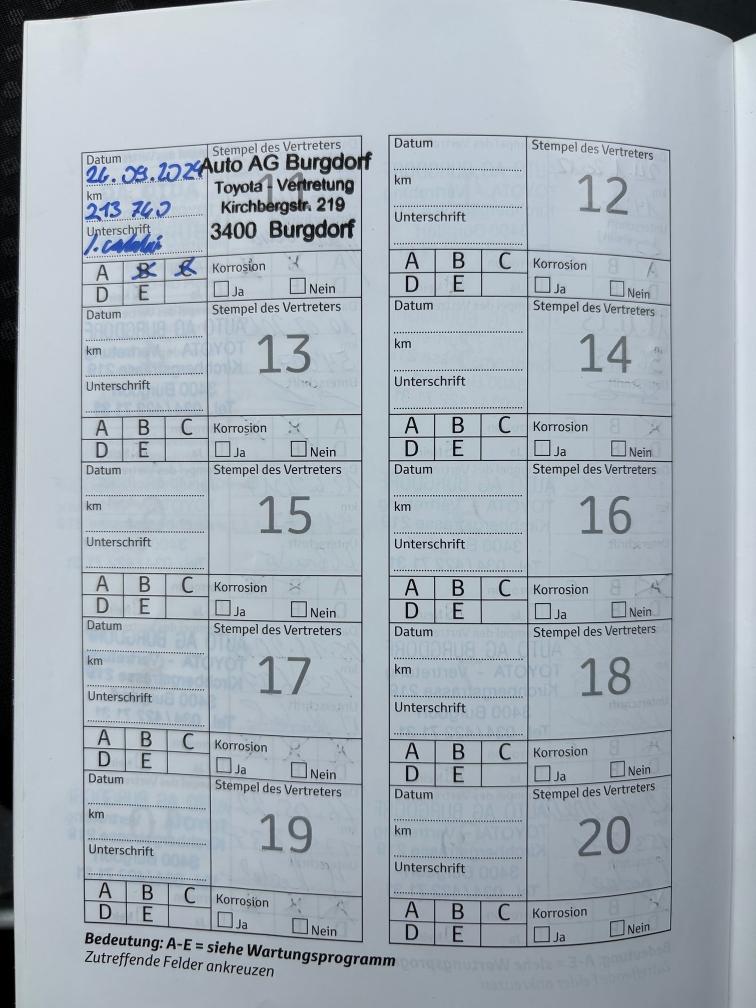 Datum
26.09.2024
km
213 740
Unterschrift
Stempel des Vertreters
11
Auto AG Burgdorf
Toyota - Vertretung
Kirchbergstr. 219
3400 Burgdorf
A B C
D E
Korrosion
Ja Nein
Datum
km
Unterschrift
Stempel des Vertreters
12
A B C
D E
Korrosion
Ja Nein
Datum
km
Unterschrift
Stempel des Vertreters
13
A B C
D E
Korrosion
Ja Nein
Datum
km
Unterschrift
Stempel des Vertreters
14
A B C
D E
Korrosion
Ja Nein
Datum
km
Unterschrift
Stempel des Vertreters
15
A B C
D E
Korrosion
Ja Nein
Datum
km
Unterschrift
Stempel des Vertreters
16
A B C
D E
Korrosion
Ja Nein
Datum
km
Unterschrift
Stempel des Vertreters
17
A B C
D E
Korrosion
Ja Nein
Datum
km
Unterschrift
Stempel des Vertreters
18
A B C
D E
Korrosion
Ja Nein
Datum
km
Unterschrift
Stempel des Vertreters
19
A B C
D E
Korrosion
Ja Nein
Datum
km
Unterschrift
Stempel des Vertreters
20
A B C
D E
Korrosion
Ja Nein
Bedeutung: A-E = siehe Wartungsprogramm
Zutreffende Felder ankreuzen